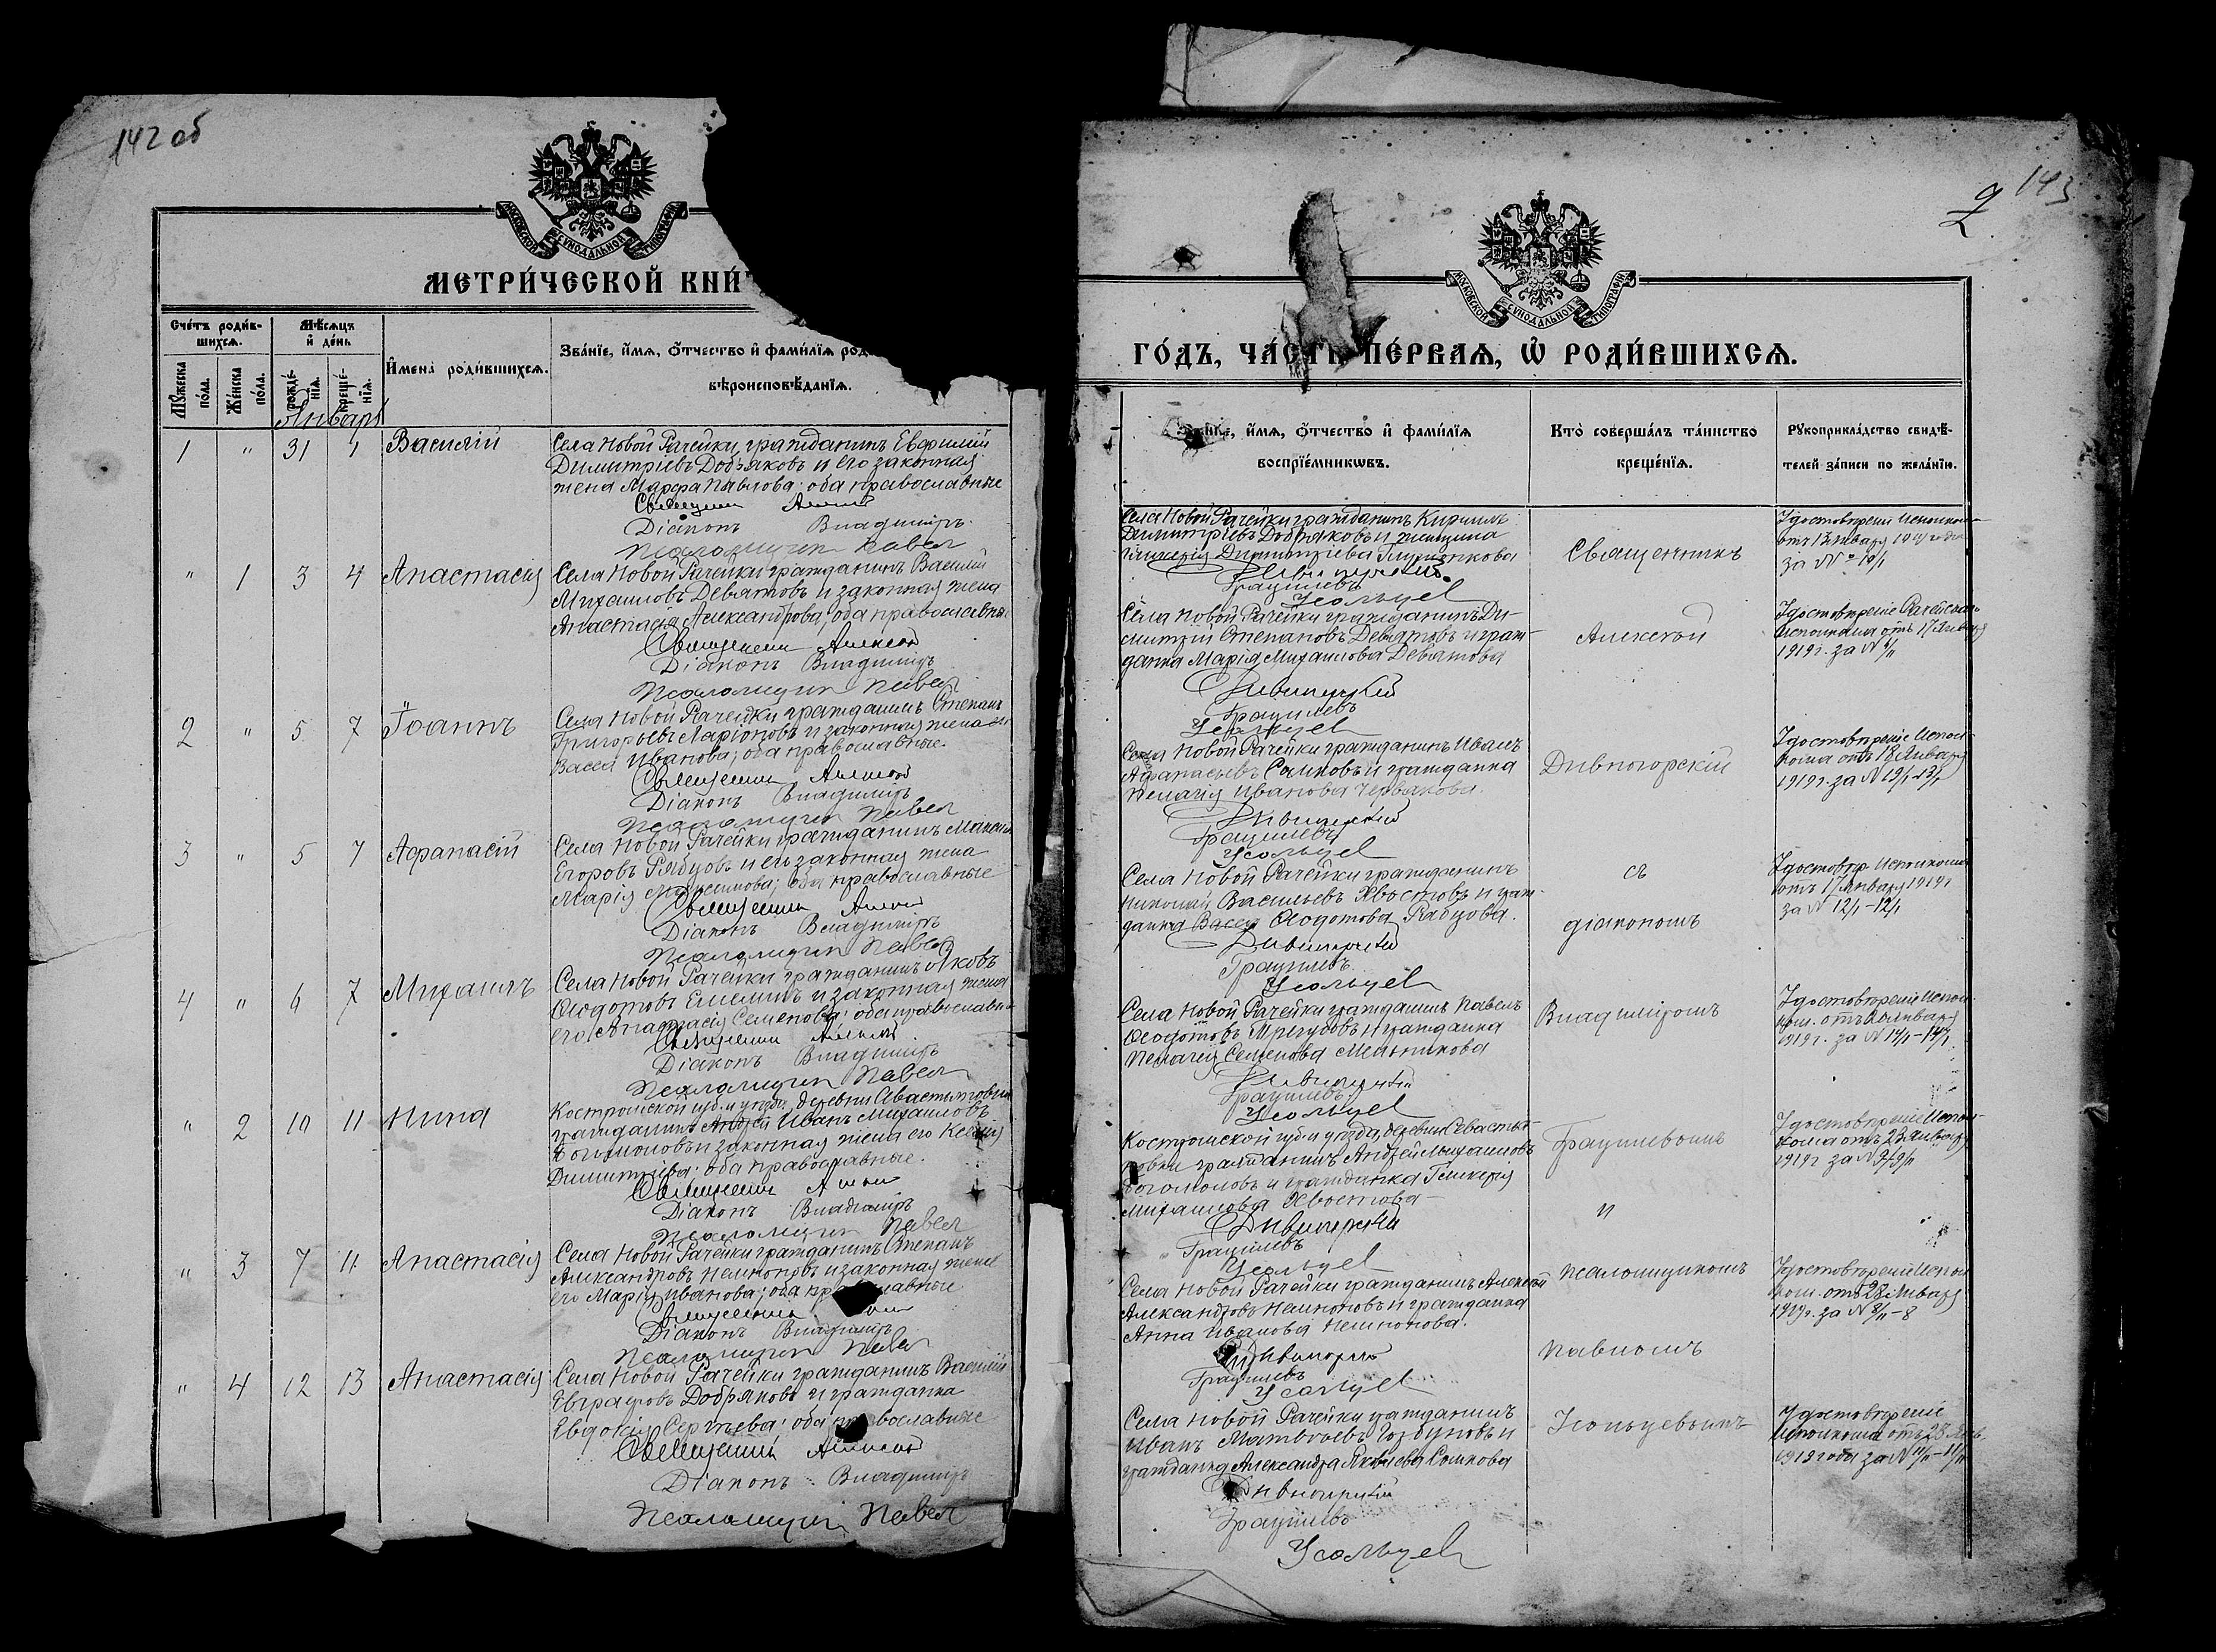 142 об
МОСКОВСКОЙ СѴНОДАЛЬНОЙ ТИПОГРАФІИ
МЕТРИ́ЧЕСКОЙ КНИ́
Сче́тъ роди́в-
шихсѧ.
Мѣ́сѧцъ
и҆ де́нь
Мꙋ́жеска
по́ла.
Же́нска
по́ла.
рожде́-
нїѧ.
креще́-
нїѧ.
И҆мена̀ роди́вшихсѧ.
Зва́нїе, и҆́мѧ, ѻ҆́тчество и҆ фами́лїѧ род
вѣроисповѣ́данїѧ.
Январь
1 " 31 1 Василій
Села Новой Рачейки, гражданинъ Евфимій
Димитріевъ Добряковъ и его законная
жена Марфа Павлова; оба православные
Священникъ Алексій
Діаконъ Владиміръ
Псаломщикъ Павел
" 1 3 4 Анастасія
Села Новой Рачейки гражданинъ Василій
Михаиловъ Девятовъ и законная жена
Анастасія Александрова; оба православные
Священникъ Алексій
Діаконъ Владиміръ
Псаломщик Павел
2 " 5 7 Іоаннъ
Села Новой Рачейки гражданинъ Степанъ
Григорьевъ Ларіоновъ и законная жена его
Васса Иванова; оба православные.
Священникъ Алексій
Діаконъ Владиміръ
Псаломщик Павел
3 " 5 7 Афанасій
Села Новой Рачейки гражданинъ Максим
Егоровъ Рябцовъ и его законная жена
Марія Максимова; оба православные
Священникъ Алексій
Діаконъ Владиміръ
Псаломщик Павел
4 " 6 7 Михаилъ
Села Новой Рачейки гражданинъ Яковъ
Ѳеодотовъ Емелинъ и законная жена
его Анастасія Семенова; оба православные
Священникъ Алексій
Діаконъ Владиміръ
Псаломщик Павел
" 2 10 11 Нина
Костромской губ. и уѣзда, деревни
гражданинъ Андрей Иванъ Михаиловъ
Богомоловъ и законная жена его Ксенія
Димитріева; оба православные.
Священникъ Алексій
Діаконъ Владиміръ
Псаломщик Павел
" 3 7 11 Анастасія
Села Новой Рачейки гражданинъ Степанъ
Александровъ и законная жена
его Марія Иванова; оба православные
Діаконъ Владиміръ
Псаломщик Павел
" 4 12 13 Анастасія
Села Новой Рачейки гражданинъ Василій
Евграфовъ Добряковъ и гражданка
Евдокія Сергѣева; оба православные
Священникъ Алексій
Діаконъ Владиміръ
Псаломщик Павел
2 143
МОСКОВСКОЙ СѴНОДАЛЬНОЙ ТИПОГРАФІИ
ГО́ДЪ, ЧА́СТЬ ПЕ́РВАѦ, Ѡ҆ РОДИ́ВШИХСѦ.
и҆́мѧ, ѻ҆́тчество и҆ фами́лїѧ
воспрїе́мникѡвъ.
Кто̀ соверша́лъ та́инство
креще́нїѧ.
Рꙋкоприкла́дство свидѣ́-
телей за́писи по жела́нїю.
Села Новой Рачейки гражданинъ Кириллъ
Димитріевъ Добряковъ и женщина
Гликерія Димитріева
Дивногорскій
Грацилевъ
Усольцев
Священникъ
Удостовѣреніе Исполком-
отъ 13 января 1919 года
за № 10/1
Села Новой Рачейки гражданинъ Ди-
митрій Степановъ Девятовъ и граж-
данка Марія Михаилова Девятова
Дивногорскій
Грацилевъ
Усольцев
Алексѣй
Удостовѣреніе Рачейскаго
Исполкома отъ 17 Января
1919 г. за №
Села Новой Рачейки гражданинъ Иванъ
Афанасьевъ Сомковъ и гражданка
Пелагія Иванова Червякова.
Дивногорскій
Грацилевъ
Усольцев
Дивногорскій
Удостовѣреніе Испол-
кома отъ 18 Января
1919 г. за № 13/1-13/1
Села Новой Рачейки гражданинъ
Николай Васильевъ Хвостовъ и граж-
данка Васса Ѳеодотова Рябцова.
Дивногорскій
Грацилевъ
Усольцев
съ
діакономъ
Удостовѣр. Исполкома
отъ 17 Января 1919 г
за № 12/1-12/1
Села Новой Рачейки гражданинъ Павелъ
Ѳеодотовъ Трегубовъ и гражданка
Пелагея Семенова Мельникова
Дивногорскій
Грацилевъ
Усольцев
Владиміромъ
Удостовѣреніе Испол-
ком. отъ 20 Января
1919 г. за № 14/1-14/1
Костромской губ. и уѣзда, деревни
гражданинъ Андрей Михаиловъ
Богомоловъ и гражданка Гликерія
Михаилова Хвостова
Дивногорскій
Грацилевъ
Усольцев
Грацилевымъ
и
Удостовѣреніе Испол-
кома отъ 23 Января
1919 г за №
Села Новой Рачейки гражданинъ Алексѣй
Александровъ и гражданка
Анна Иванова
Дивногорскій
Грацилевъ
Усольцев
псаломщикомъ
Павломъ
Удостовѣреніе Испол
ком. отъ 23 Января
1919 г. за №
Села Новой Рачейки гражданинъ
Иванъ Матвѣевъ Горбуновъ и
гражданка Александра Яковлева Сомкова
Дивногорскій
Грацилевъ
Усольцев
Усольцевымъ
Удостовѣреніе
Исполкома отъ 23 Янв.
1919 года за №